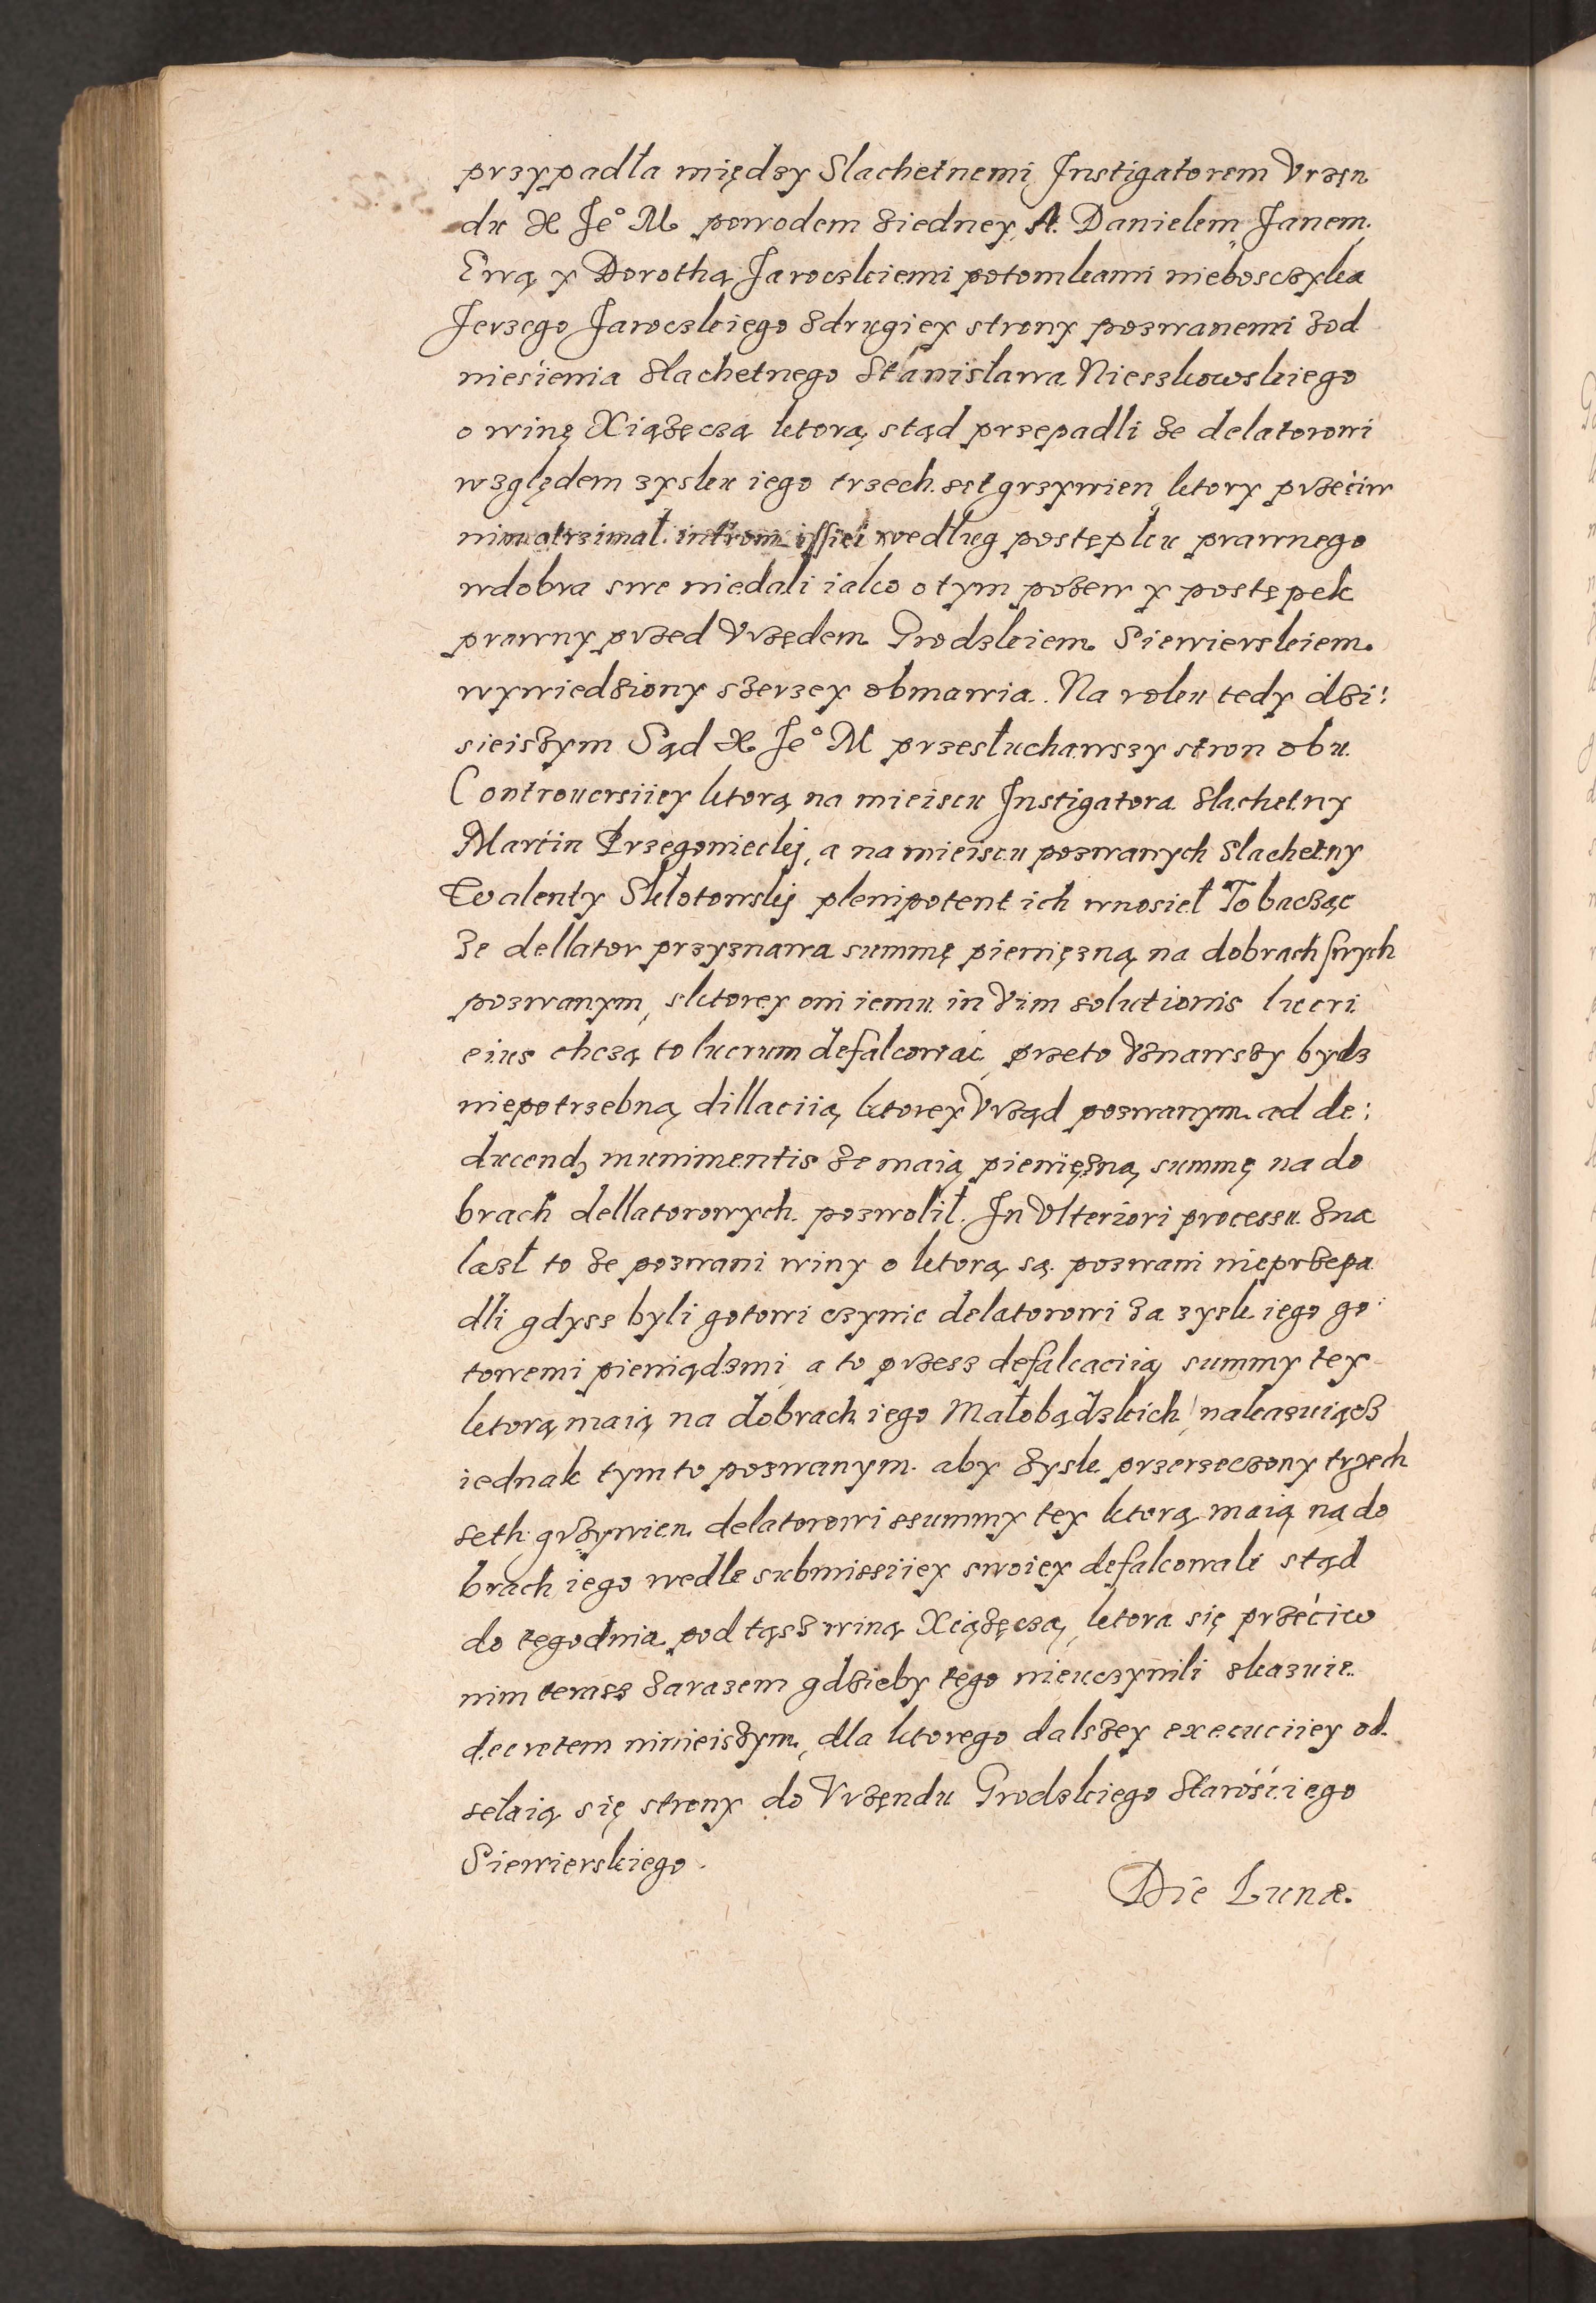 przypadła między Slachetnemi Instigatorem Vrzęn
du X Je° M powodem ziedney, A. Danielem Janem.
Ewą y Dorothą Jaroczkiemi potomkami nieboszczyka
Jerzego Jaroczkięgo zdrugiey strony pozwanemi zod
niesienia slachetnego Stanisława Nieszkowskiego
o winę Xiążęczą ktorą stąd przepadli że delatorowi
względem zysku iego trzech set grzywien ktory przeciw
nim otrzimał intromissiei według postępku prawnego
wdobra swe niedali iako o tym pozew y postępek
prawny przed Vrzędem Grodzkiem Siewierskiem.
wywiedziony szerzey obmawia. Na roku tedy dzi:
sieiszym Sąd X Je° M przesłuchawszy stron obu
Controuersiiey ktorą na mieiscu Instigatora slachetny
Marcin Przegonieckj, a na mieiscu pozwanych slachetny
Walenty Skłotowskj plenipotent ich wnosieł To bacząc
że dellator przyznawa summę pieniężną na dobrach swych
pozwanym, sktorey oni iemu in vim solutionis lucri
eius chczą to lucrum defalcowaċ, przeto vznawszy bydz
niepotrzebną dillaciią ktorey Vrząd pozwanym ad de:
ducend, munimentis że maią pieniężną summę na do
brach dellatorowych pozwolił. In vlteriori processu zna
lazł to że pozwani winy o ktorą są pozwani nieprzepa
dli gdyss byli gotowi czynic delatorowi za zysk iego go:
towemi pieniądzmi a to przesz defalcaciią summy tey
ktorą maią na dobrach iego Małobądzkich, nakazuiącz
iednak tymto pozwanym aby zysk przerzeczony trzech
seth grzywien delatorowi ssummy tey ktorą maią na do
brach iego wedle submissiiey swoiey defalcowali stąd
do tęgodnia pod tąsz winą Xciążęczą, ktora się przeciw
nim terasz zarazem gdzieby tęgo nieuczynili skazuie
decretem ninieiszym, dla ktorego dalszey execuciiey od
sełaią się strony do Vrzęndu Grodzkiego Starościego
Siewierskiego.
Die Lunæ.